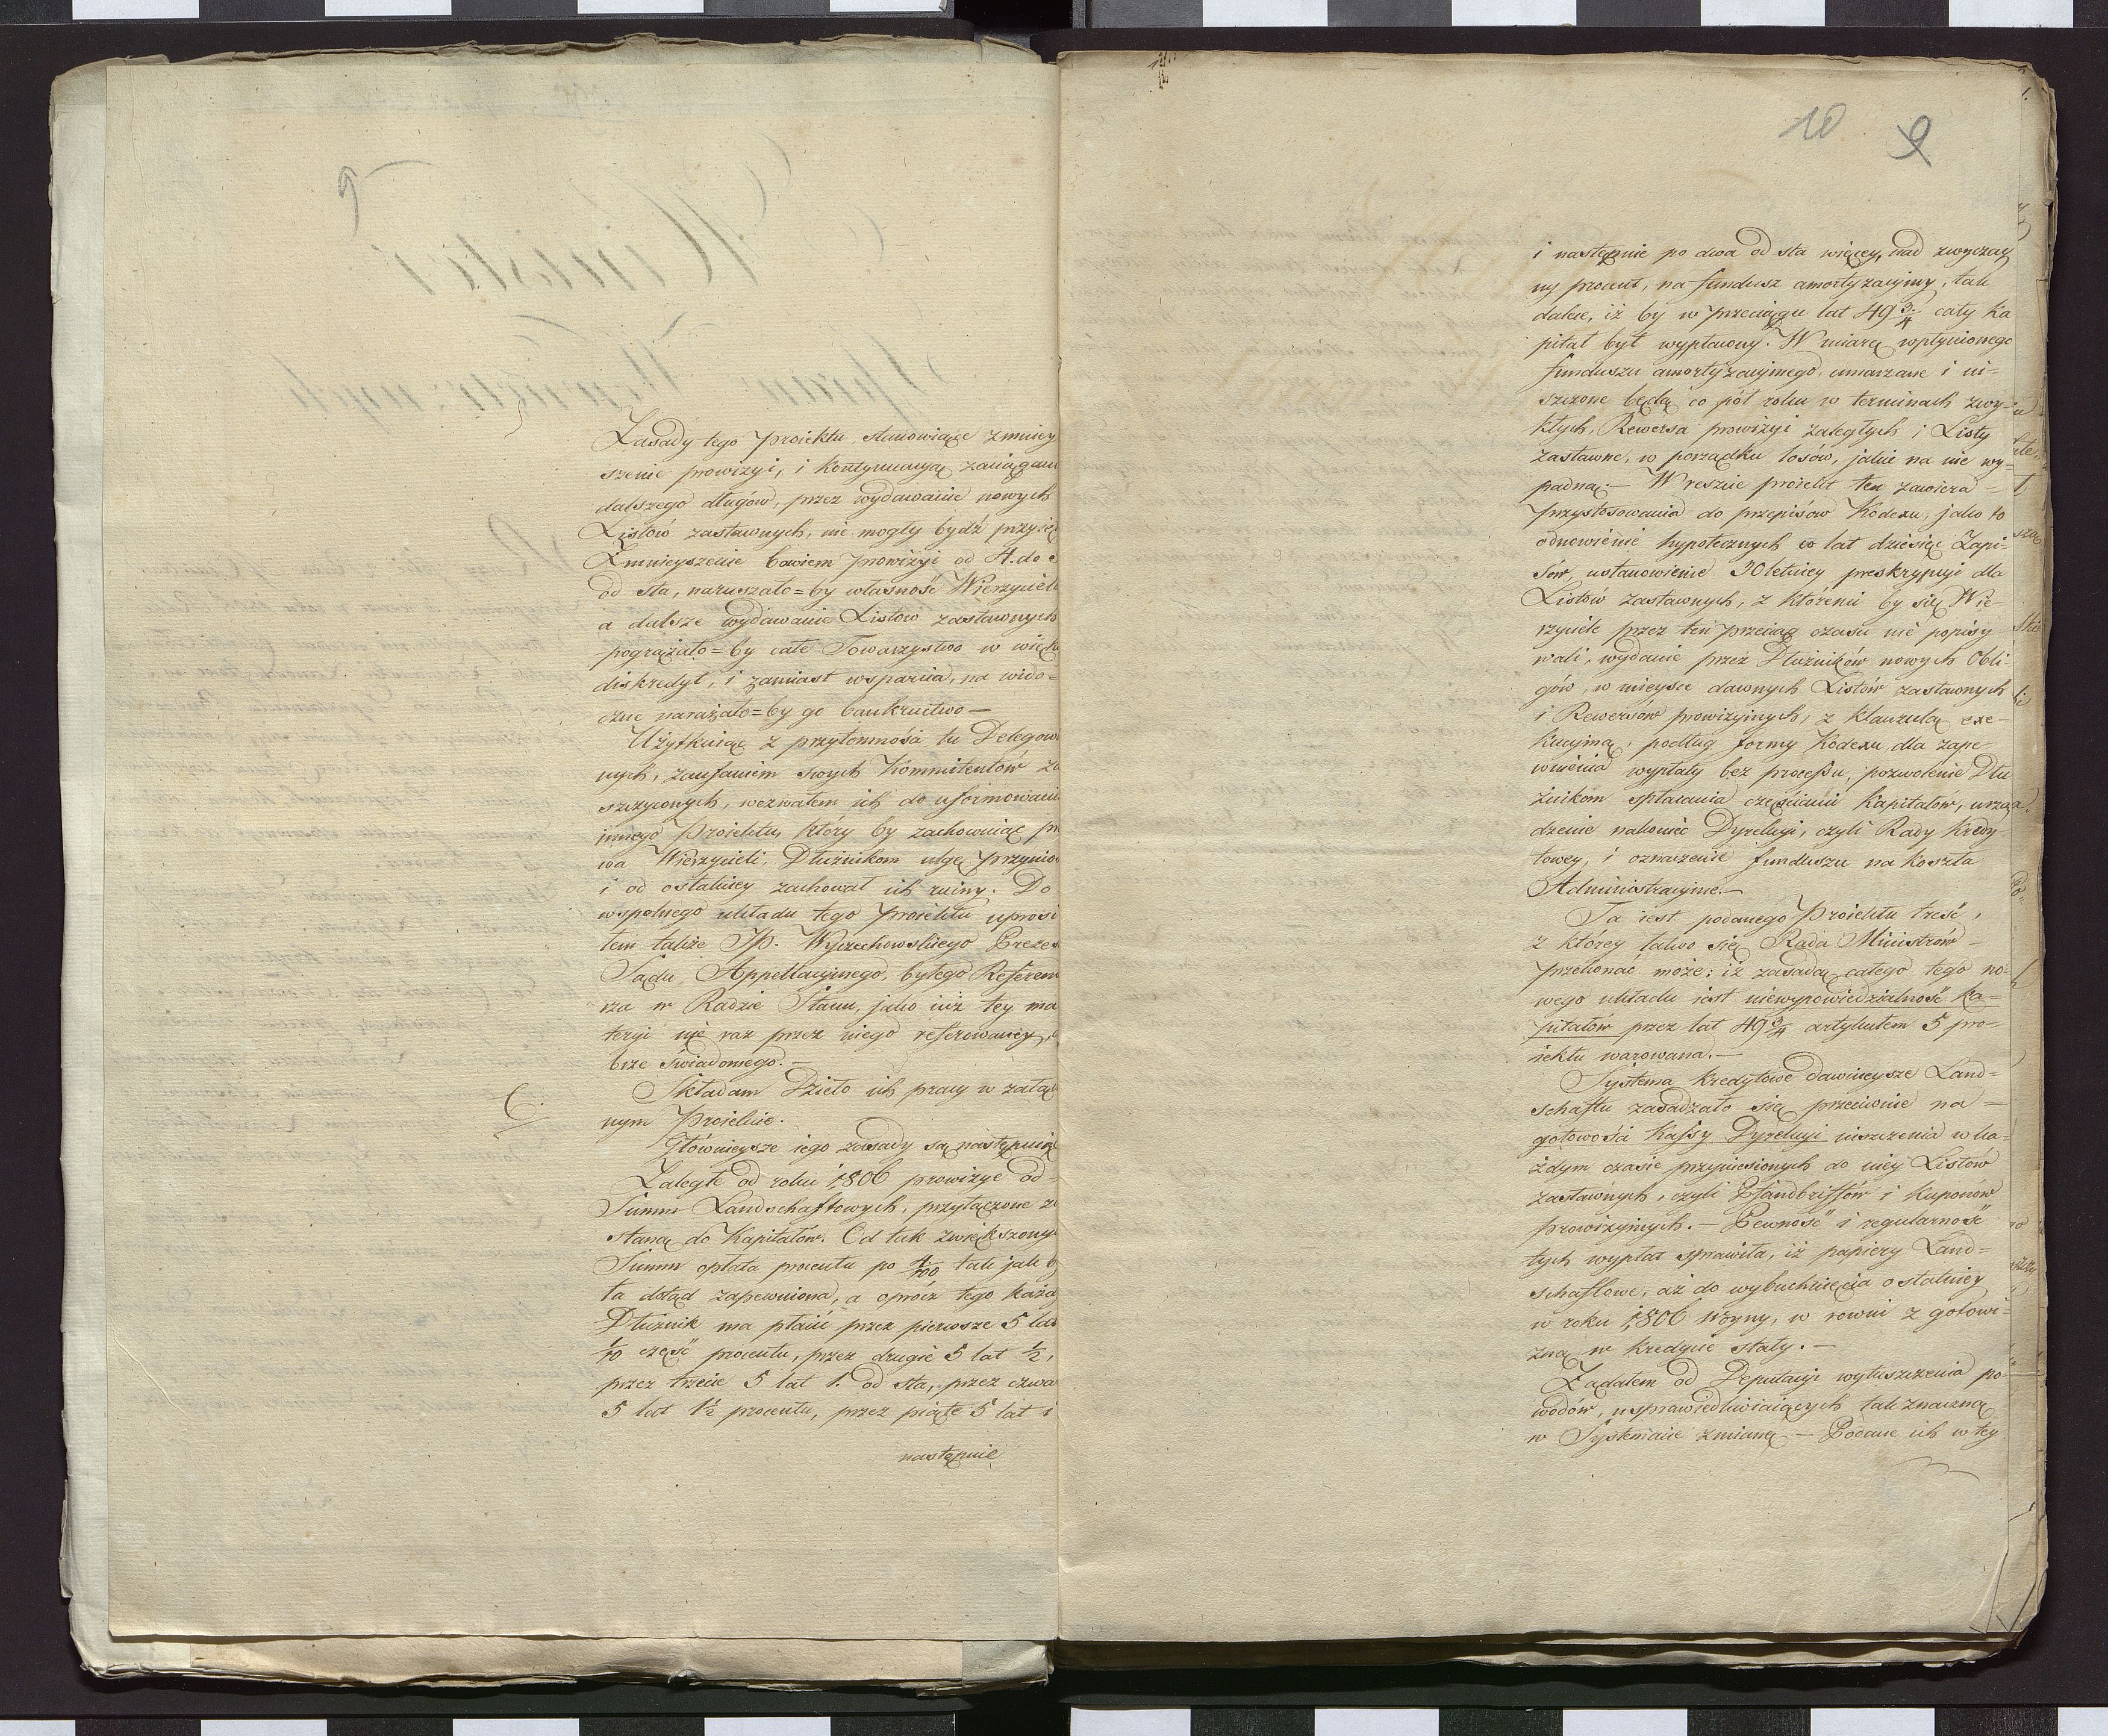 Zasady tego Proiektu stanowiące zmniey
szenie prowizyi, i kontynuacyą zaciągani
dalszego długów, przez wydawanie nowych
Listów zastawnych, nie mogły bydź przyię
Zmnieyszenie bowiem prowizyi od 4. do
od sta, naruszało=by własność Wierzyciel
a dalsze wydawanie Listow zastawnych
pogrążało=by całe Towarzystwo w więk
diskredyt, i zamiast wsparcia, na wido=
czne narażało=by go bankructwo —
Użytkuiąc z przytomności tu Delegow
nych, zaufaniem swych Kommitentów za
szczyconych, wezwałem ich do uformowani
innego Proiektu, który by zachowuiąc pr
wa Wierzycieli, Dłużnikom ulgę przynió
i od ostatniey zachował ich ruiny. Do
wspolnego układu tego Proiektu uprosi
łem także JP. Wyczechowskiego Prezes
Sądu Appellacyinego, byłego Referen
rza w Radzie Stanu, jako iuż tey ma
teryi nie raz przez niego referowaney,
brze świadomego. —
C.
Składam Dzieło ich pracy w załąc
nym Proiekcie.
Głównieysze iego zasady są następuią
Zaległe od roku 1806 prowizye od
Summ Landschaftowych, przyłączone zo
staną do Kapitałów. Od tak zwiększony
Summ opłata procentu po 4/100 tak jak by
ła dotąd zapewniona, a oprócz tego każd
Dłużnik ma płacić przez pierwsze 5 lat
1/10 część procentu, przez drugie 5 lat 1/2,
przez trzecie 5 lat 1. od sta, przez czwa
5 lat 1 1/2 procentu, przez piąte 5 lat i
następnie
10 9
i następnie po dwa od sta więcey, nad zwyczay
ny procent, na fundusz amortyzacyiny, tak
dalece, iż by w przeciągu lat 49 3/4 cały Ka
pitał był wypłacony. W miarę wpłynionego
funduszu amortyzacyinego, umarzane i ni-
szczone będą co pół roku w terminach zwy-
kłych, Rewersa prowizyi zaległych i Listy
zastawne, w porządku losów, jakie na nie wy-
padną. — W reszcie proiekt ten zawiera —
przystosowania do przepisów Kodexu, jako to
odnowienie hypotecznych co lat dziesięć Zapi-
sów, ustanowienie 30letniey preskrypcyi dla
Listów zastawnych, z któremi by się Wie-
rzyciele przez ten przeciąg czasu nie popisy
wali, wydanie przez Dłużników nowych Obli-
gów, w mieysce dawnych Listów zastawnych
i Rewersów prowizyinych, z klauzulą exe-
kucyiną, podług formy Kodexu, dla zape-
wnienia wypłaty bez processu, pozwolenie Dłu
żnikom spłacania częściami Kapitałów, urzą
dzenie nakoniec Dyrekcyi, czyli Rady Kredy-
towey, i oznaczenie funduszu na koszta
Administracyine. —
Ta iest podanego Proiektu treść,
z którey łatwo się Rada Ministrów —
przekonać może; iż zasadą całego tego no-
wego układu iest niewypowiedzialność ka=
pitałów przez lat 49 3/4 artykułem 5 pro-
iektu warowana. —
Systema kredytowe dawnieysze Land=
schaftu zasadzało się przeciwnie na —
gotowości Kassy Dyrekcyi uiszczenia w ka-
żdym czasie przyniesionych do niey Listów
zastawnych, czyli Pfandbriffów i kuponów
prowizyinych. — Pewność i regularność
tych wypłat sprawiła, iż papiery Land=
schaftowe, aż do wybuchnięcia ostatniey
w roku 1806 woyny, w rowni z gotowi-
zną w kredycie stały. —
Żądałem od Deputacyi wyłuszczenia po-
wodów, usprawiedliwiaiących tak znaczną
w Systemacie zmianę — Podane ich w tey